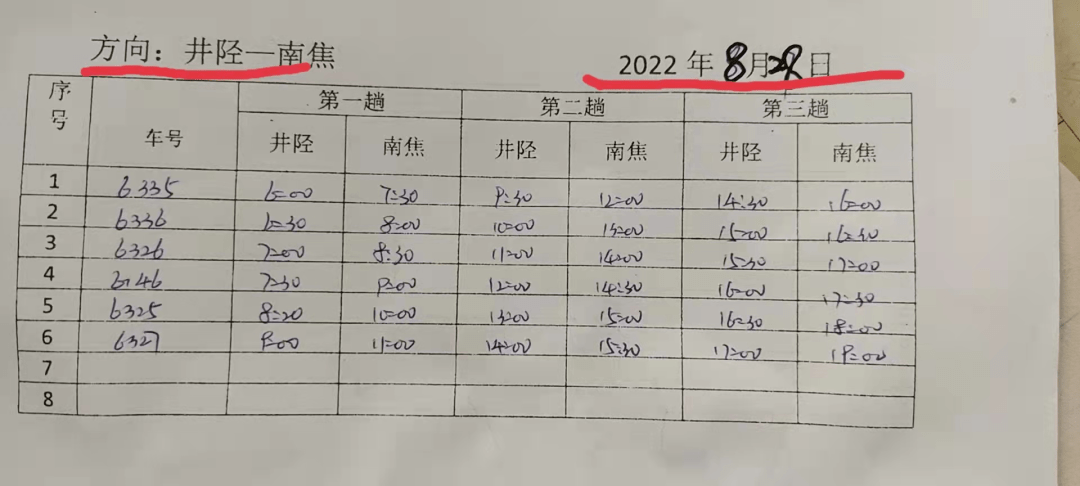 方向：井陉—南焦
2022 年 8月 日
序号 车号 第一趟 第二趟 第三趟
井陉 南焦 井陉 南焦 井陉 南焦
1 6335 6:00 7:30 9:30 12:00 14:30 16:00
2 6336 6:30 8:00 10:00 13:00 15:00 16:30
3 6326 7:00 8:30 11:00 14:00 15:30 17:00
4 6146 7:30 9:00 12:00 14:30 16:00 17:30
5 6325 8:20 10:00 13:00 15:00 16:30 18:00
6 6327 9:00 11:00 14:00 15:30 17:00 19:00
7
8